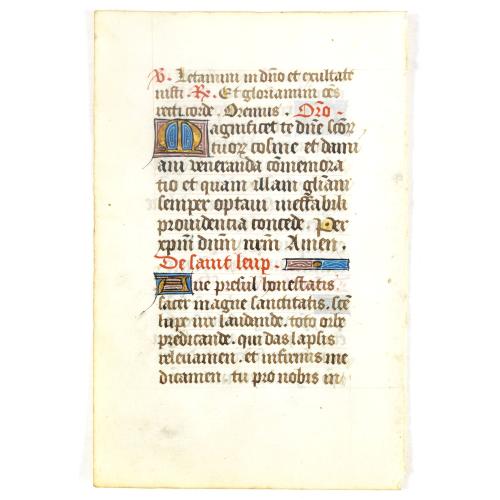 V. Letamini in dño et exultate
iusti . R. Et gloriamini oẽs
recti corde . Oremus . Oro-
Magnificet te dñe scõr
tuor cosme et dami
ani veneranda cõmemora
tio et quam illam gliam
semper optaui ineffabili
prouidencia concede . Per
xpm̃ dñum nrm̃ Amen .
De saint leup .
Aue presul honestatis
sacer magne sanctitatis . scẽ
lupe uir laudande . toto orbe
predicande . qui das lapsis
releuamen . et infirmis me
dicamen . tu pro nobis in